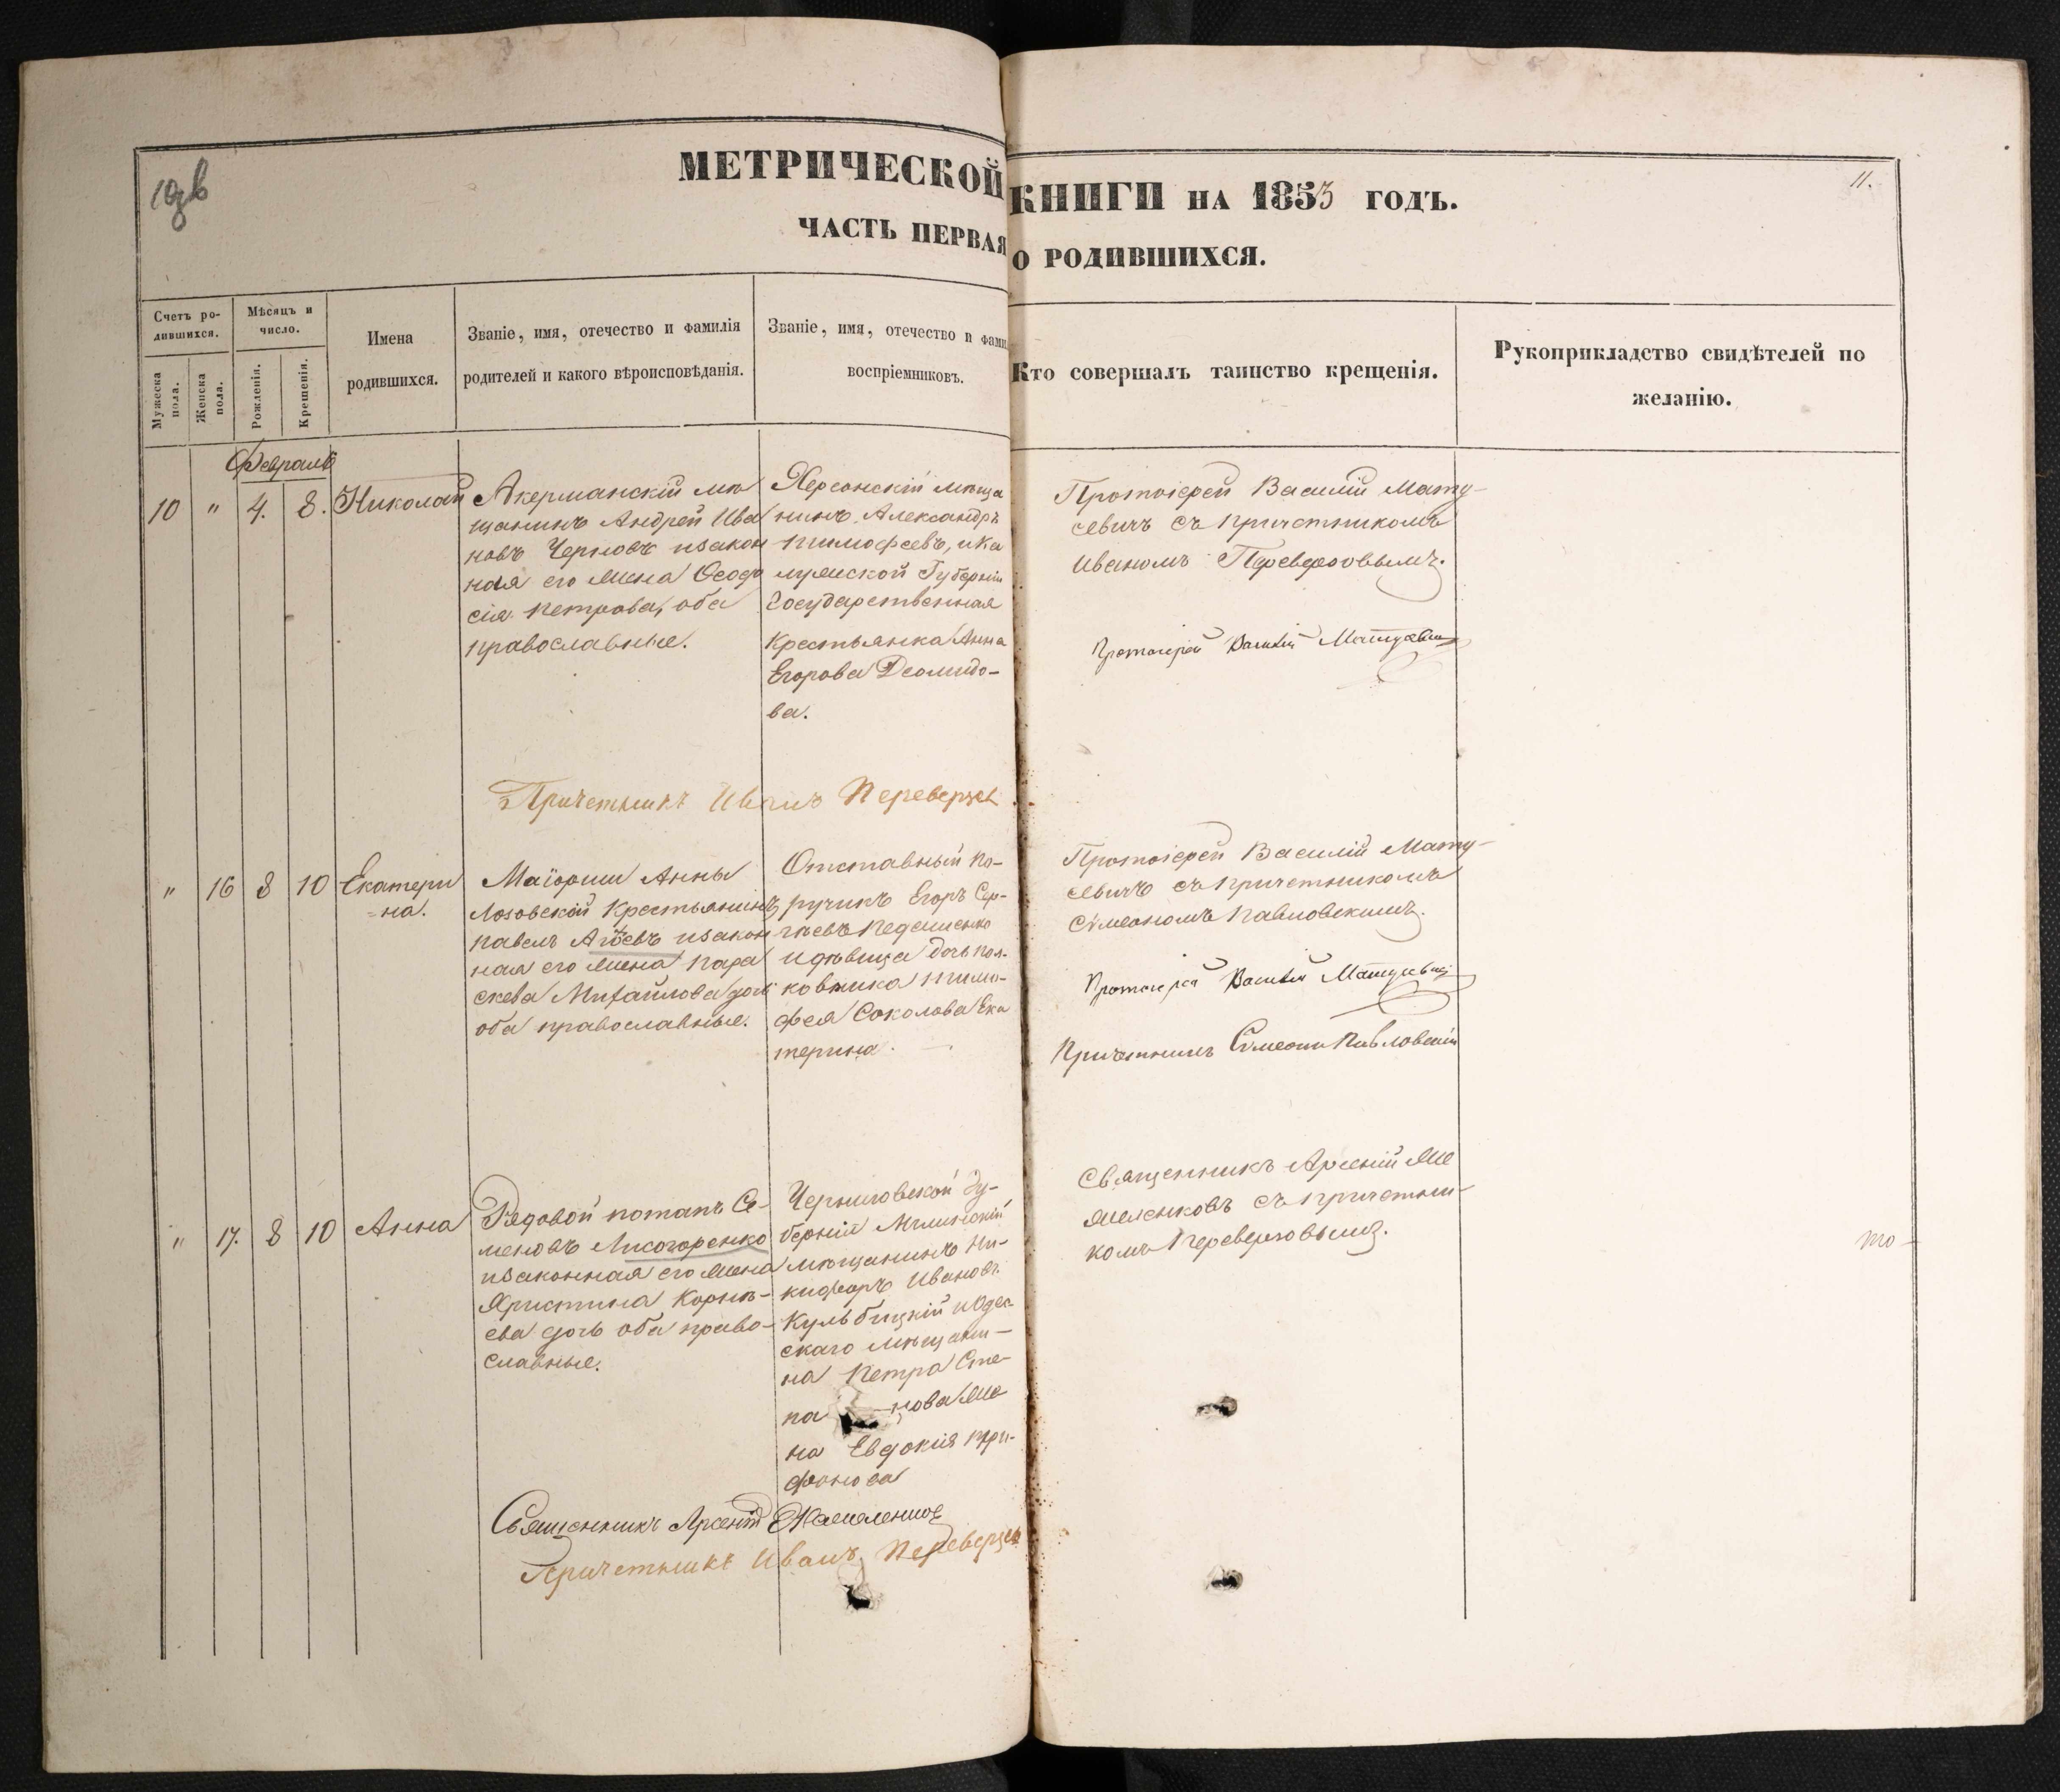 МЕТРИЧЕСКОЙ КНИГИ НА 1853 ГОДЪ.
ЧАСТЬ ПЕРВАЯ О РОДИВШИХСЯ.
11.
Счетъ ро-
дившихся.
Мужеска
пола.
Женска
пола.
Мѣсяцъ и
число.
Рожденія.
Крещенія.
Имена
родившихся.
Званіе, имя, отечество и фамилія
родителей и какого вѣроисповѣданія.
Званіе, имя, отечество и фами
воспріемниковъ.
Кто совершалъ таинство крещенія.
Рукоприкладство свидѣтелей по
желанію.
Февраль
10 " 4. 8. Николай
Акерманскій мѣ
щанинъ Андрей Ива
новъ Черновъ изакон
ная его жена Ѳеодо
сія Петрова, оба
православные.
Херсонскій мѣща
нинъ Александръ
Тимофеевъ, и Ка
лужской Губерніи
Государственная
крестьянка Анна
Егорова Деомидо-
ва.
Протоіерей Василій Мату-
севичъ съ причетникомъ
Иваномъ Переверзовымъ.
Протоіерей Василій Матусевич
Причетникъ Иванъ Переверзев
" 16 8 10 Екатери
на.
Маіорши Анны
Лозовской крестьянинъ
Павелъ изакон
ная его жена Пара
скева Михайлова дочь
оба православные.
Отставный по-
ручикъ Егоръ Сер-
гѣевъ
и дѣвица дочь пол-
ковника Тимо-
фея Соколова Ека
терина.
Протоіерей Василій Мату-
севичъ съ причетникомъ
Сѵмеономъ Павловскимъ.
Протоіерей Василій Матусевич
Причетникъ Сѵмеонъ Павловскій
" 17. 8 10 Анна
Рядовой Потапъ Се-
меновъ Лисогоренко
изаконная его жена
Христина Корнѣ-
ева дочь оба право-
славные.
Черниговской Гу-
берніи Мглинскій
мѣщанинъ Ни-
кифоръ Ивановъ
Кульбицкій и Одес
скаго мѣщани-
на Петра Сте-
па - нова же
на Евдокія Три-
фонова
Священникъ Арсеній
съ причетни-
комъ Переверзовымъ.
то-
Священникъ Арсеній
Причетникъ Иванъ Переверзев